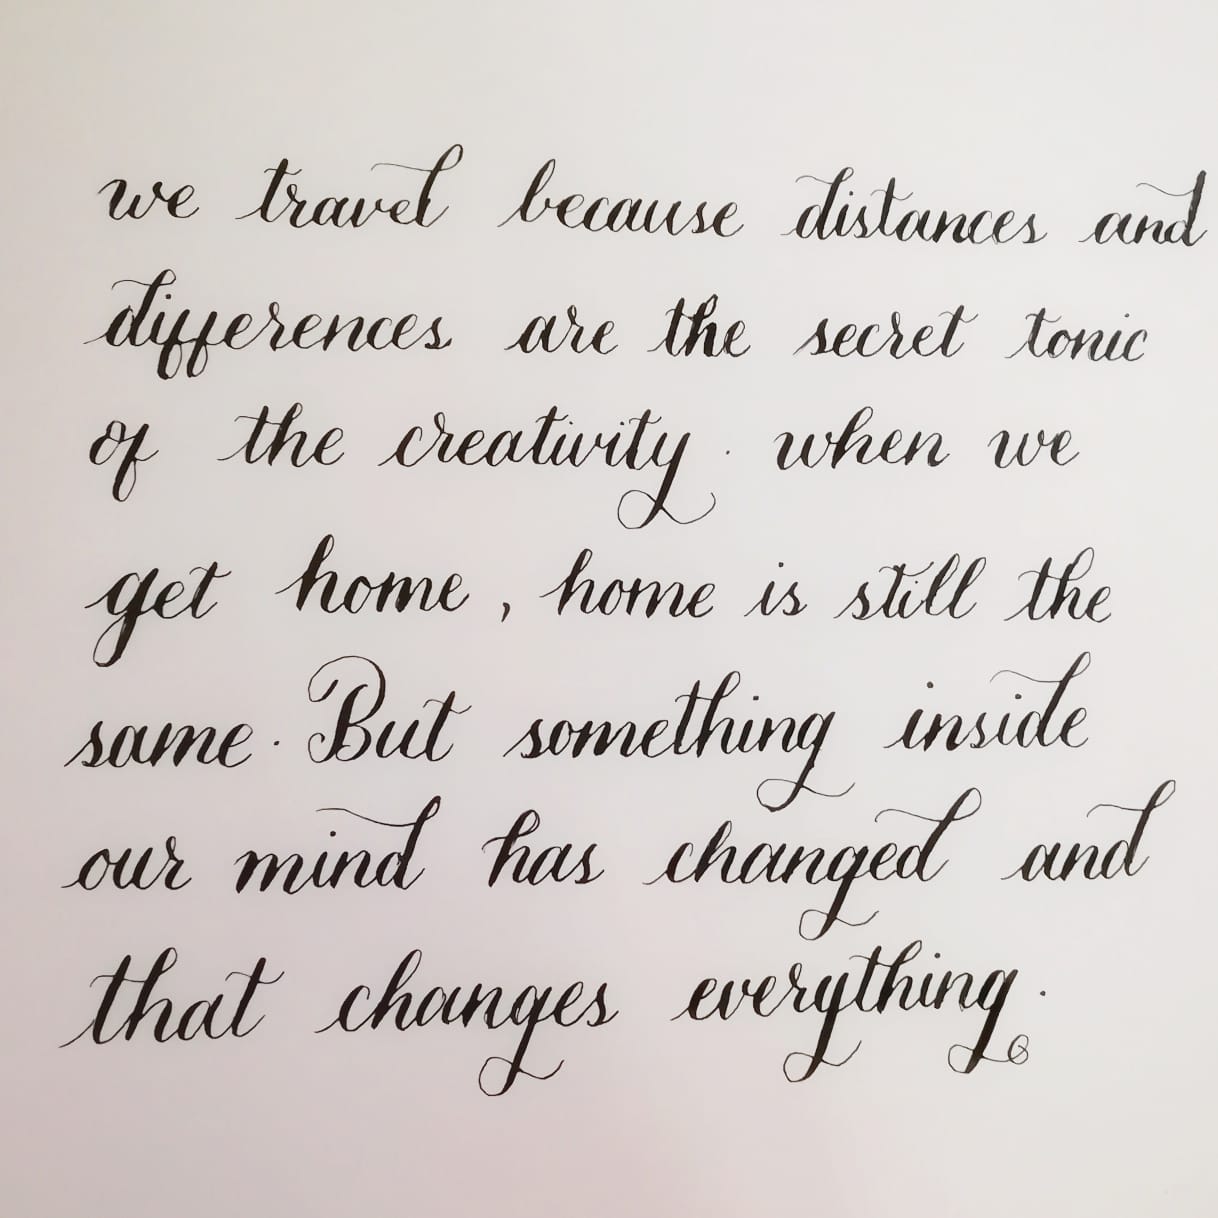 we travel because distances and
differences are the secret tonic
of the creativity. when we
get home, home is still the
same. But something inside
our mind has changed and
that changes everything.